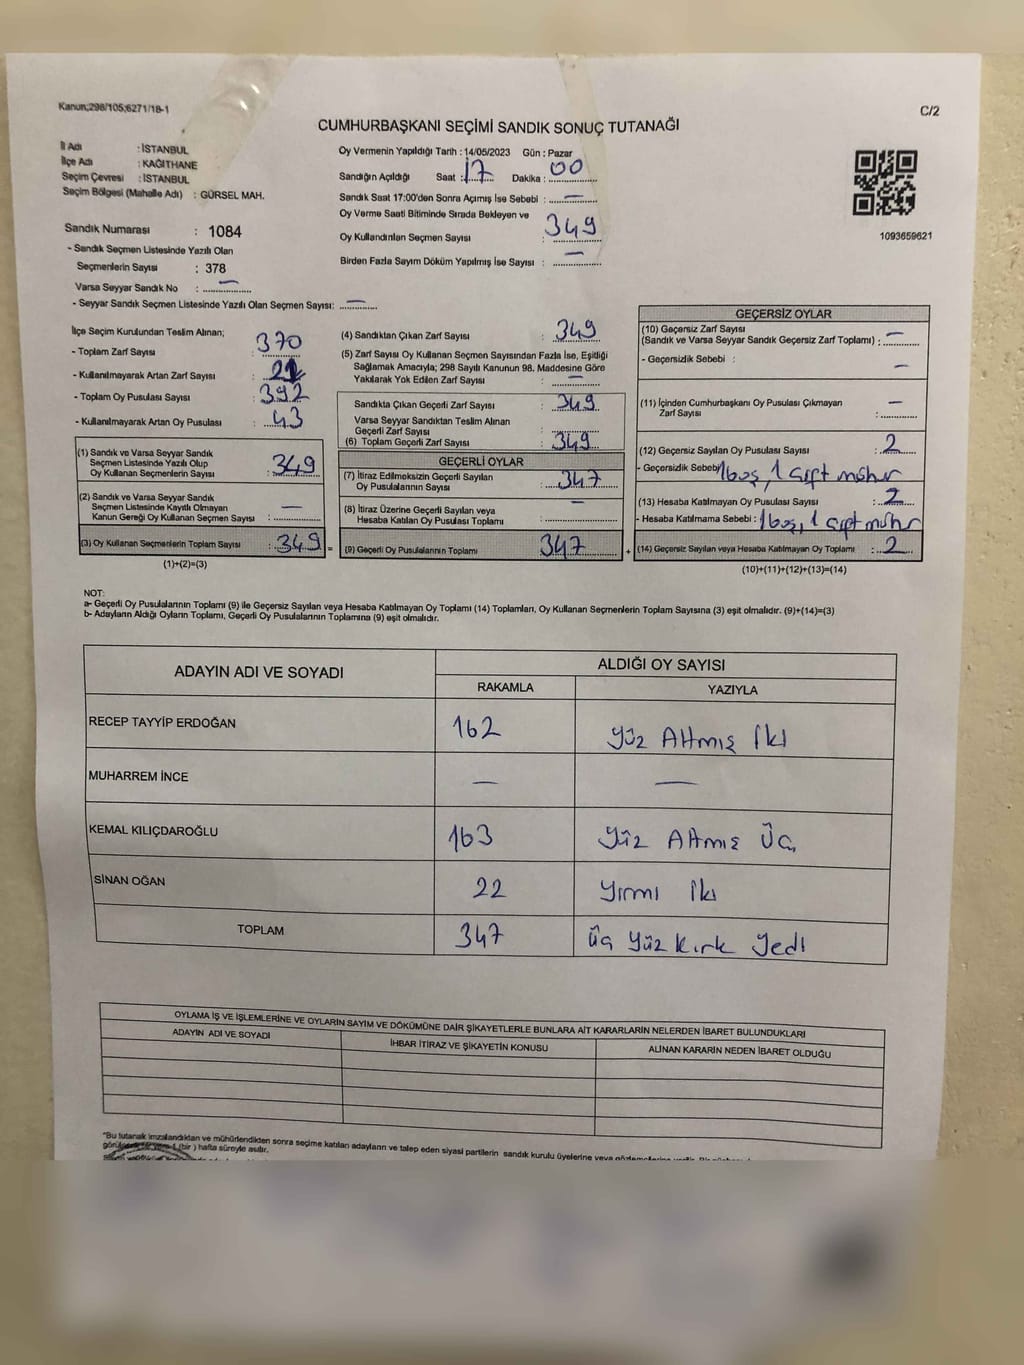 Kanun;298/105;6271/18-1
C/2
CUMHURBAŞKANI SEÇİMİ SANDIK SONUÇ TUTANAĞI
İl Adı : İSTANBUL
İlçe Adı : KAĞITHANE
Seçim Çevresi : İSTANBUL
Seçim Bölgesi (Mahalle Adı) : GÜRSEL MAH.
Sandık Numarası : 1084
- Sandık Seçmen Listesinde Yazılı Olan
Seçmenlerin Sayısı : 378
Varsa Seyyar Sandık No : —
- Seyyar Sandık Seçmen Listesinde Yazılı Olan Seçmen Sayısı: —
Oy Vermenin Yapıldığı Tarih : 14/05/2023 Gün : Pazar
Sandığın Açıldığı Saat : 17 Dakika : 00
Sandık Saat 17:00'den Sonra Açımış İse Sebebi : —
Oy Verme Saati Bitiminde Sırada Bekleyen ve
Oy Kullandırılan Seçmen Sayısı : 349
Birden Fazla Sayım Döküm Yapılmış İse Sayısı : —
1093659621
İlçe Seçim Kurulundan Teslim Alınan;
- Toplam Zarf Sayısı 370
- Kullanılmayarak Artan Zarf Sayısı : 21
- Toplam Oy Pusulası Sayısı : 392
- Kullanılmayarak Artan Oy Pusulası : 43
(1) Sandık ve Varsa Seyyar Sandık
Seçmen Listesinde Yazılı Olup
Oy Kullanan Seçmenlerin Sayısı : 349
(2) Sandık ve Varsa Seyyar Sandık
Seçmen Listesinde Kayıtlı Olmayan
Kanun Gereği Oy Kullanan Seçmen Sayısı : —
(3) Oy Kullanan Seçmenlerin Toplam Sayısı : 349 =
(1)+(2)=(3)
(4) Sandıktan Çıkan Zarf Sayısı : 349
(5) Zarf Sayısı Oy Kullanan Seçmen Sayısından Fazla İse, Eşitliği
Sağlamak Amacıyla; 298 Sayılı Kanunun 98. Maddesine Göre
Yakılarak Yok Edilen Zarf Sayısı : —
Sandıkta Çıkan Geçerli Zarf Sayısı : 349
Varsa Seyyar Sandıktan Teslim Alınan
Geçerli Zarf Sayısı :
(6) Toplam Geçerli Zarf Sayısı : 349
GEÇERLİ OYLAR
(7) İtiraz Edilmeksizin Geçerli Sayılan
Oy Pusulalarının Sayısı : 347
(8) İtiraz Üzerine Geçerli Sayılan veya
Hesaba Katılan Oy Pusulası Toplamı : —
(9) Geçerli Oy Pusulalarının Toplamı 347 +
GEÇERSİZ OYLAR
(10) Geçersiz Zarf Sayısı
(Sandık ve Varsa Seyyar Sandık Geçersiz Zarf Toplamı) : —
- Geçersizlik Sebebi : —
(11) İçinden Cumhurbaşkanı Oy Pusulası Çıkmayan
Zarf Sayısı : —
(12) Geçersiz Sayılan Oy Pusulası Sayısı : 2
- Geçersizlik Sebebi 1 boş, 1 çift mühür
(13) Hesaba Katılmayan Oy Pusulası Sayısı : 2
- Hesaba Katılmama Sebebi : 1 boş, 1 çift mühür
(14) Geçersiz Sayılan veya Hesaba Katılmayan Oy Toplamı : 2
(10)+(11)+(12)+(13)=(14)
NOT:
a- Geçerli Oy Pusulalarının Toplamı (9) ile Geçersiz Sayılan veya Hesaba Katılmayan Oy Toplamı (14) Toplamları, Oy Kullanan Seçmenlerin Toplam Sayısına (3) eşit olmalıdır. (9)+(14)=(3)
b- Adayların Aldığı Oyların Toplamı, Geçerli Oy Pusulalarının Toplamına (9) eşit olmalıdır.
ADAYIN ADI VE SOYADI ALDIĞI OY SAYISI
RAKAMLA YAZIYLA
RECEP TAYYİP ERDOĞAN 162 Yüz Altmış İki
MUHARREM İNCE — —
KEMAL KILIÇDAROĞLU 163 Yüz Altmış Üç
SİNAN OĞAN 22 Yirmi İki
TOPLAM 347 Üç Yüz Kırk Yedi
OYLAMA İŞ VE İŞLEMLERİNE VE OYLARIN SAYIM VE DÖKÜMÜNE DAİR ŞİKAYETLERLE BUNLARA AİT KARARLARIN NELERDEN İBARET BULUNDUKLARI
ADAYIN ADI VE SOYADI İHBAR İTİRAZ VE ŞİKAYETİN KONUSU ALINAN KARARIN NEDEN İBARET OLDUĞU
"Bu tutanak imzalandıktan ve mühürlendikten sonra seçime katılan adayların ve talep eden siyasi partilerin sandık kurulu üyelerine veya
(bir) hafta süreyle asılır.